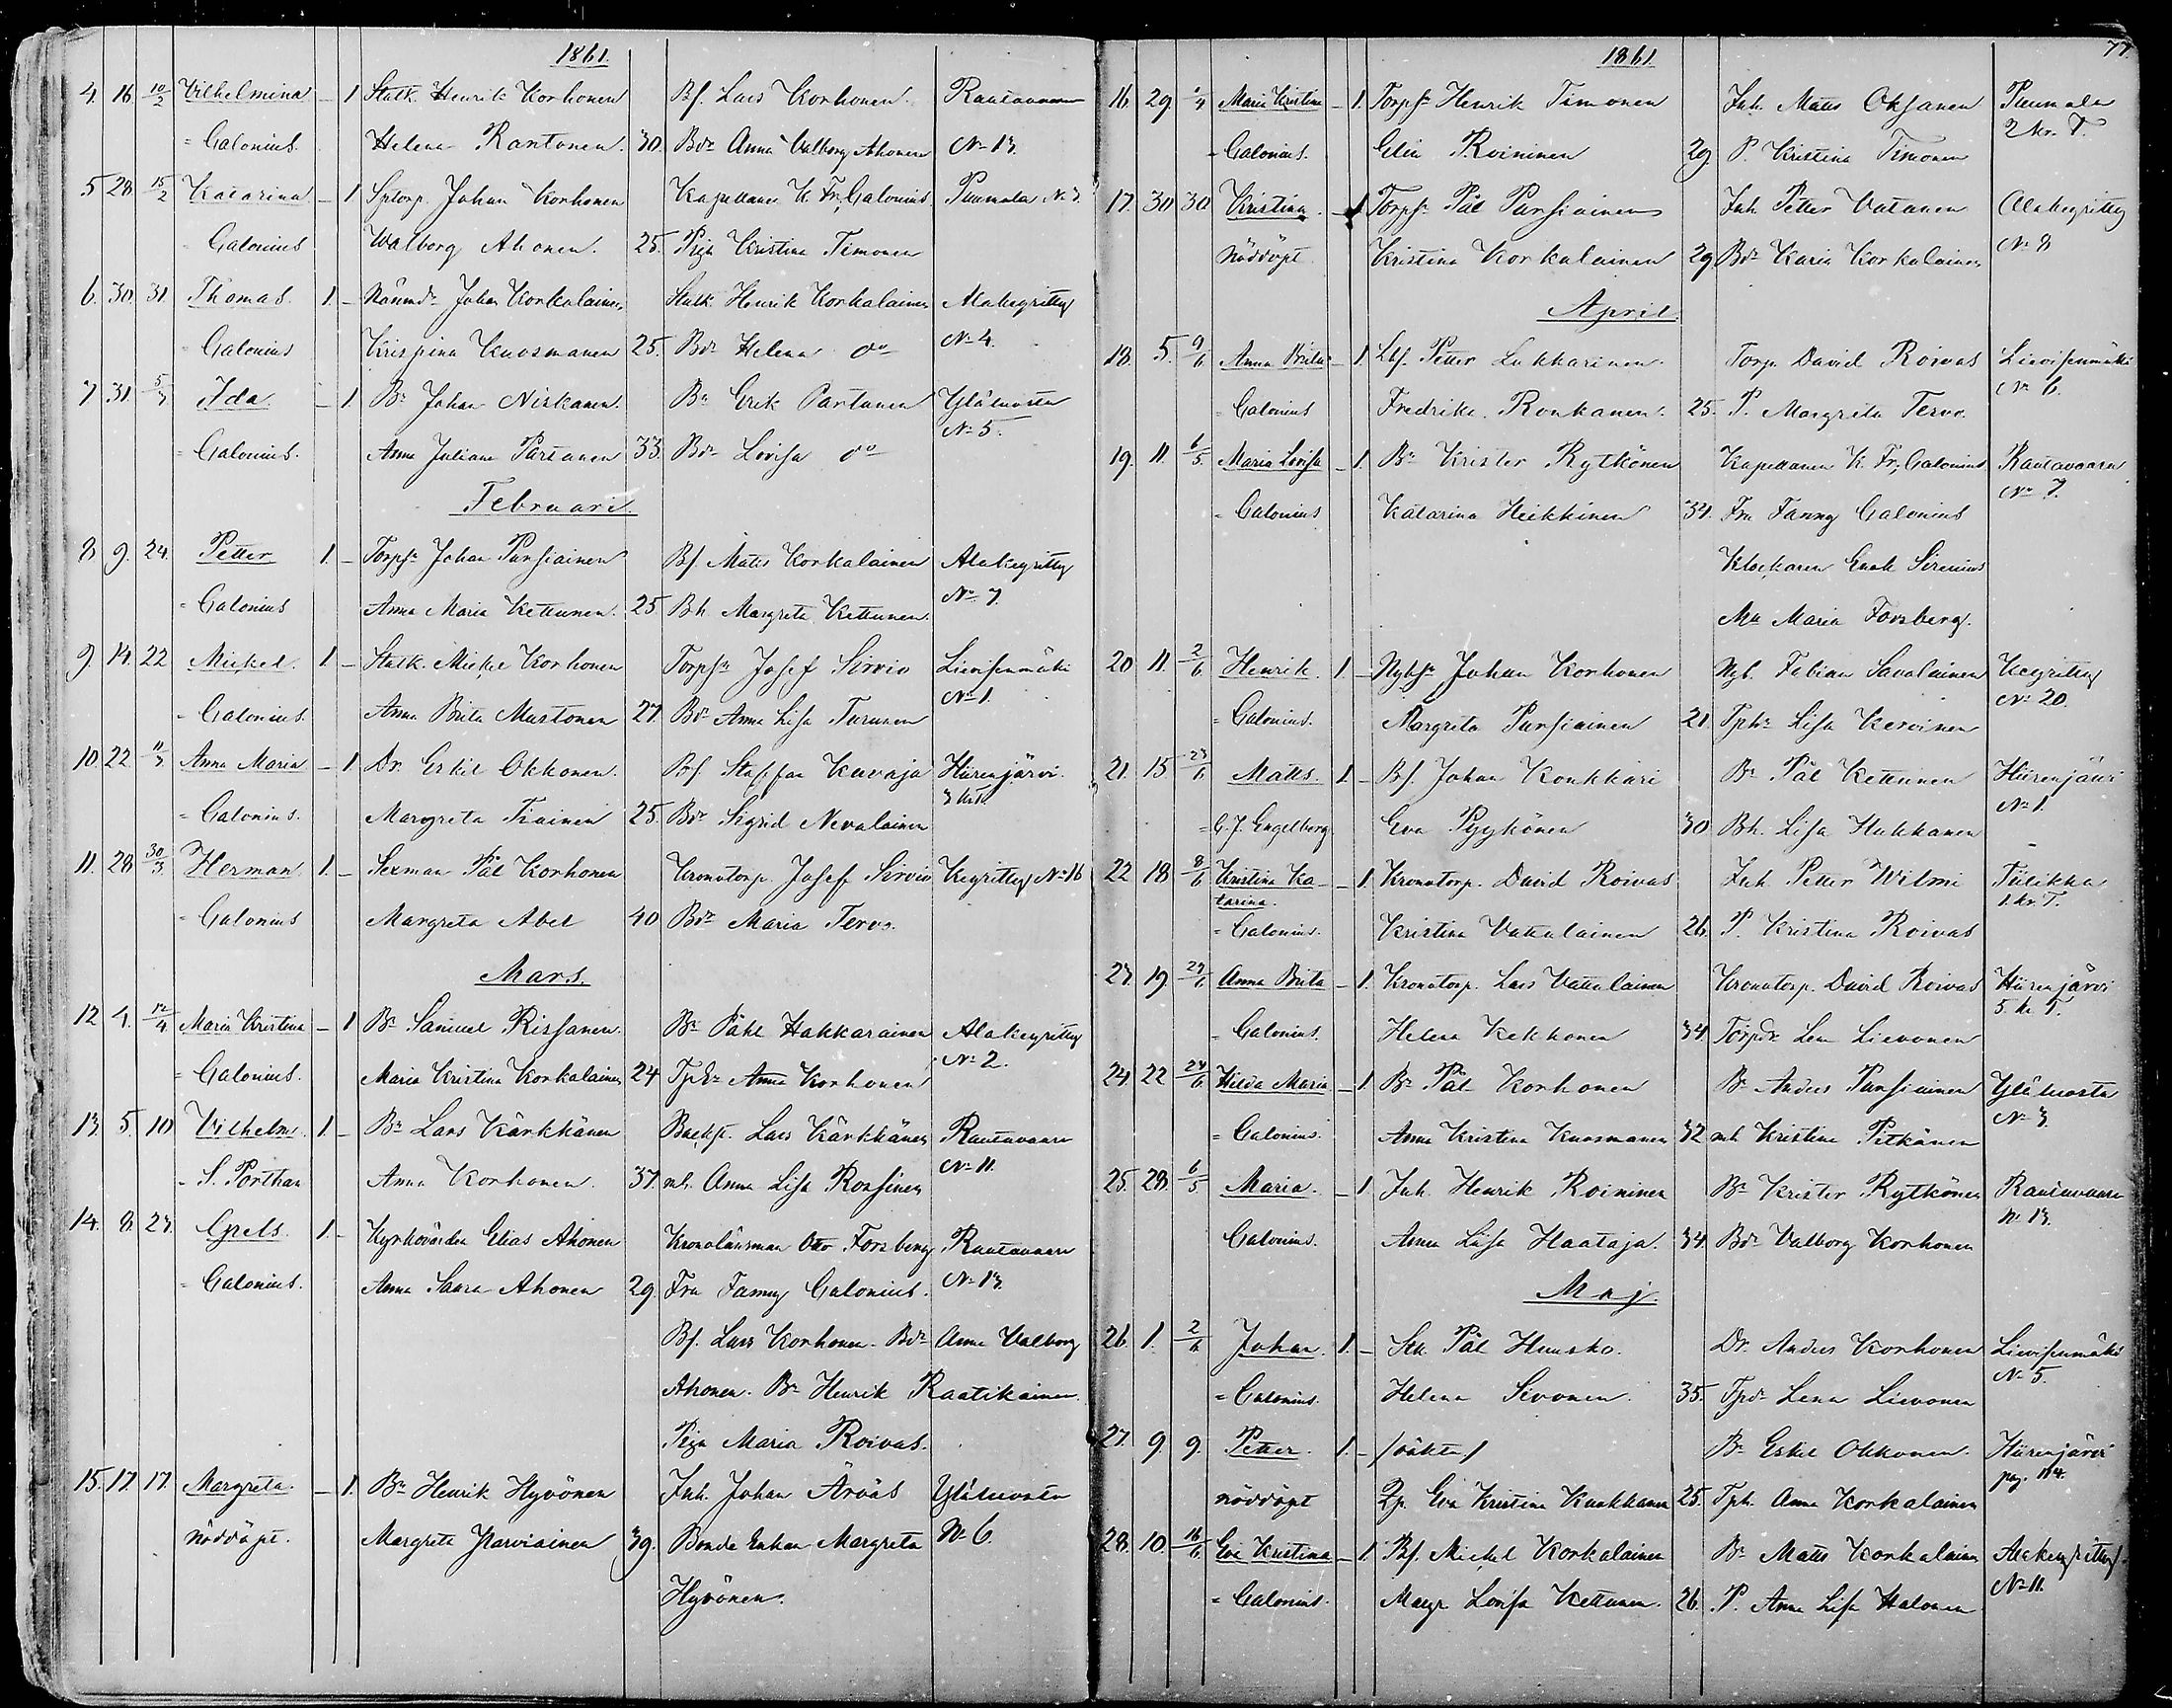 1861.
4. 16. 10/2 Vilhelmina – 1 Statk. Henrik Korhonen Bf. Lars Korhonen Rautavaara
= Calonius. Helena Rantonen. 30. Bdr Anna Valborg Ahonen No 13.
5 28 15/2 Katarina – 1 Johan Korhonen Kapellanen K. Fr. Calonius Puumala No 3.
Calonius Walborg Ahonen. 25. Piga Kristina Timonen
6. 30. 31. Thomas. 1. – Nämnd. Johan Korkalainen Statk. Henrik Korkalainen Alakeyritty
Calonius Krispina Kuosmanen 25. Bdr Helena do No 4.
7 31. 5/3 Ida – 1. Bn Johan Niskanen. Bn Erik Partanen Yläluosta
= Calonius. Anna Juliana Partanen 33. Bdr Lovisa do No 5.
Februari.
8 9. 24. Petter 1. – Torps. Johan Pursiainen Bf. Matts Korkalainen Alakeyritty
= Calonius Anna Maria Kettunen. 25 Bh. Margreta Kettunen. No 7.
9 14. 22 Mickel. 1. – Statk. Mickel Korhonen Torps. Josef Sirviö Lievisenmäki
= Calonius. Anna Brita Mustonen 27. Bdr Anna Lisa Turunen No 1.
10. 22 11/3 Anna Maria – 1. Dr. Eskil Okkonen. Bf. Staffan Kuvaja Hiirenjärvi
= Calonius. Margreta Tiainen 25. Bdr Sigrid Nevalainen 3 kr T.
11. 28 30/3. Herman 1. – Sexman Pål Korhonen Kronotorp. Josef Sirviö Keyritty No 16
= Calonius Margreta Abel 40 Bdr Maria Tervo.
Mars.
12 4. 12/4 Maria Kristina – 1 Bn Samuel Rissanen. Bn Påhl Hakkarainen Alakeyritty
= Calonius. Maria Kristina Korkalainen 24 Tpdr Anna Korhonen No 2.
13. 5. 10 Vilhelm. 1. – Bn Lars Kärkkänen Backst. Lars Kärkkänen Rautavaara
= S. Porthan Anna Korhonen. 37. mh. Anna Lisa Ronsinen No 11.
14. 8. 23. Grels. 1. – Kyrkovärden Elias Ahonen Kronolänsman Otto Forsberg Rautavaara
= Calonius. Anna Saara Ahonen 29. Fru Fanny Calonius. No 13.
Bf. Lars Korhonen. Bdr Anna Valborg
Ahonen. Bn Henrik Raatikainen.
Piga Maria Roivas.
15. 17. 17. Margreta. – 1. Bn Henrik Hyvönen Inh. Johan Ärväs Yläluosta
nöddöpt. Margreta Parviainen 39. Bonde Enkan Margreta No 6.
Hyvönen.
1861 77.
16. 29. Maria Kristina – 1. Torps. Henrik Timonen Inh. Matts Oksanen Puumala
= Calonius. Elin Roininen 29 P. Kristina Timonen 2 kr. T.
17. 30 30 Kristina – 1 Torps. Pål Pursiainen Inh. Petter Vatanen Alakeyritty
nöddöpt. Kristina Korkalainen 29 Bdr Karin Korkalainen No 8
April.
18. 5. 9/6. Anna Brita – 1. Lbf. Petter Lukkarinen Torp. David Roivas Lievisenmäki
= Calonius Fredrika Ronkanen. 25. P. Margreta Tervo. No 6.
19. 11. 6/5. Maria Lovisa – 1. Bn Krister Rytkönen Kapellanen K. Fr. Calonius Rautavaara
= Calonius Katarina Heikkinen 34. Fru Fanny Calonius No 7.
Klockaren Enok Sirenius
Maria Forsberg.
20 11. 2/6. Henrik 1. – Nybs. Johan Korhonen Nyb. Fabian Savolainen Keyritty
= Calonius. Margreta Pursiainen 21 Tph. Lisa Kervinen No 20.
21. 15. 23/6 Matts. 1. – Bf. Johan Konkkari Bn Pål Kettunen Hiirenjärvi
= G. J. Engelberg Eva Pyykönen 30 Bh. Lisa Hukkanen No 1.
22 18 8/6 Kristina Ka- – 1. Kronotorp. David Roivas Inh. Petter Wilmi Tiilikka
tarina. 1. kr. T.
= Calonius. Kristina Vatulainen 26. P. Kristina Roivas
23. 19. 23/6 Anna Brita – 1. Kronotorp. Lars Vattulainen Kronotorp. David Roivas Hiirenjärvi
= Calonius. Helena Kekkonen 34. Torpdr Lena Lievonen 5. kr. T.
24. 22 24/6 Hilda Maria – 1. Bn Pål Korhonen Bn Anders Pursiainen Yläluosta
= Calonius. Anna Kristina Kuosmanen 32 mh. Kristina Pitkänen No 3.
25. 28. 6/5 Maria. – 1 Inh. Henrik Roininen Bn Krister Rytkönen Rautavaara
Calonius. Anna Lisa Haataja. 34. Bdr Valborg Korhonen No 13.
Maj.
26. 1. 2/6 Johan. 1. – Pål Huusko. Dr. Anders Korhonen Lievisenmäki
= Calonius. Helena Sivonen. 35. Tpdr Lena Lievonen No 5.
27. 9. 9. Petter. 1. – /oäkta/ Bn Eskil Okkonen. Hiirenjärvi
nöddöpt Eva Kristina Kuokkanen 25. Tph. Anna Korkalainen pag. 114.
28. 10. 16/6 Eva Kristina – 1. Bf. Mickel Korkalainen Bn Matts Korkalainen Alakeyritty
= Calonius. Margr Lovisa Kettunen. 26. P. Anna Lisa Halonen No 11.